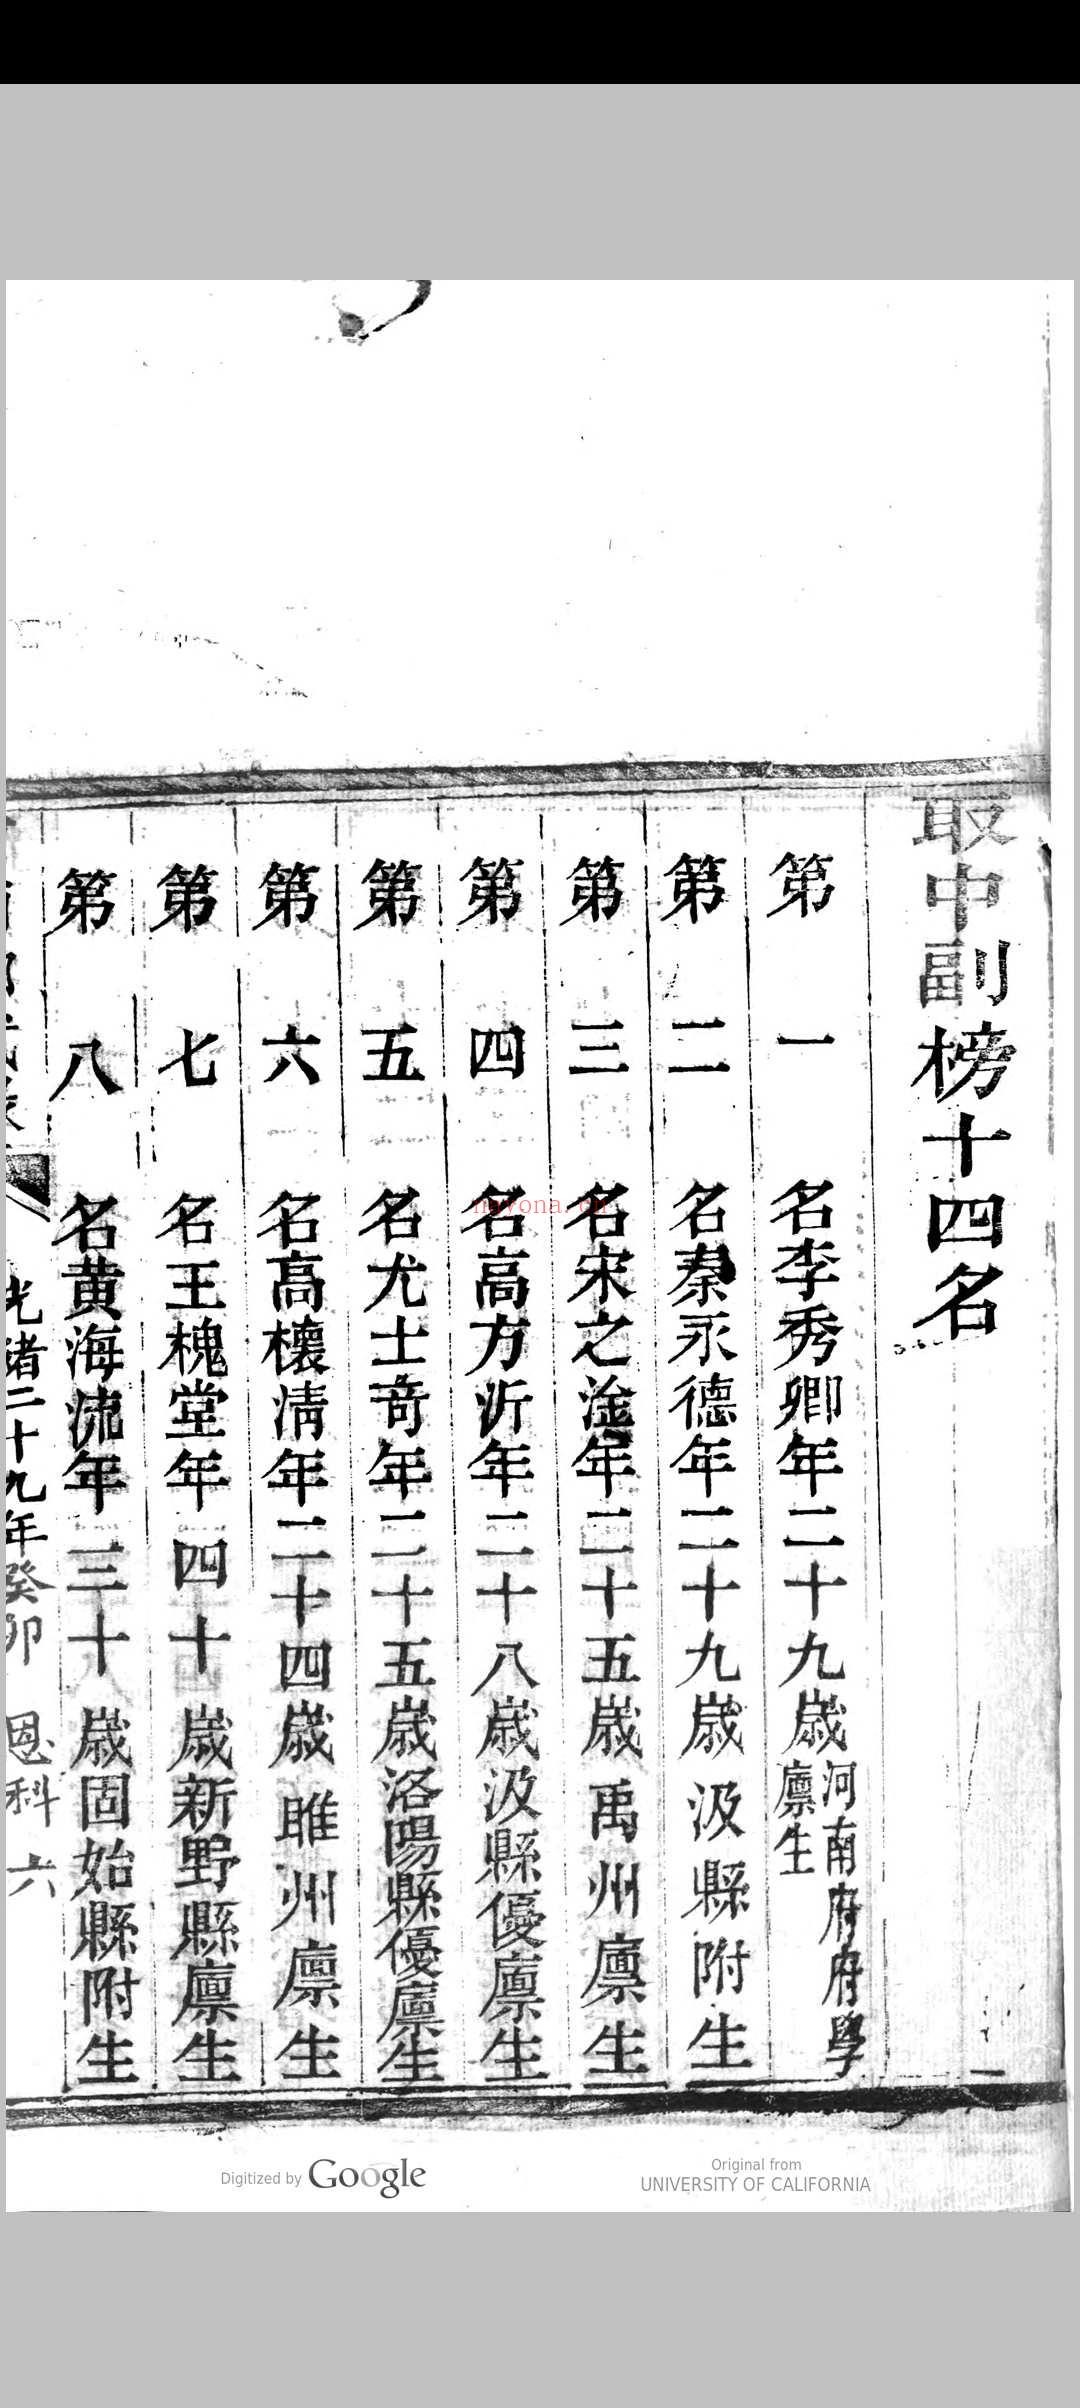 取中副榜十四名
第一名李秀卿年二十九歲河南府府學廩生
第二名秦永德年二十九歲汲縣附生
第三名宋之淦年二十五歲禹州廩生
第四名高方沂年二十八歲汲縣優廩生
第五名尤士奇年二十五歲洛陽縣優廩生
第六名高櫰清年二十四歲睢州廩生
第七名王槐堂年四十歲新野縣廩生
第八名黃海流年三十歲固始縣附生
光緒二十九年癸卯 恩科 六
navona.cn
Digitized by Google
Original from
UNIVERSITY OF CALIFORNIA